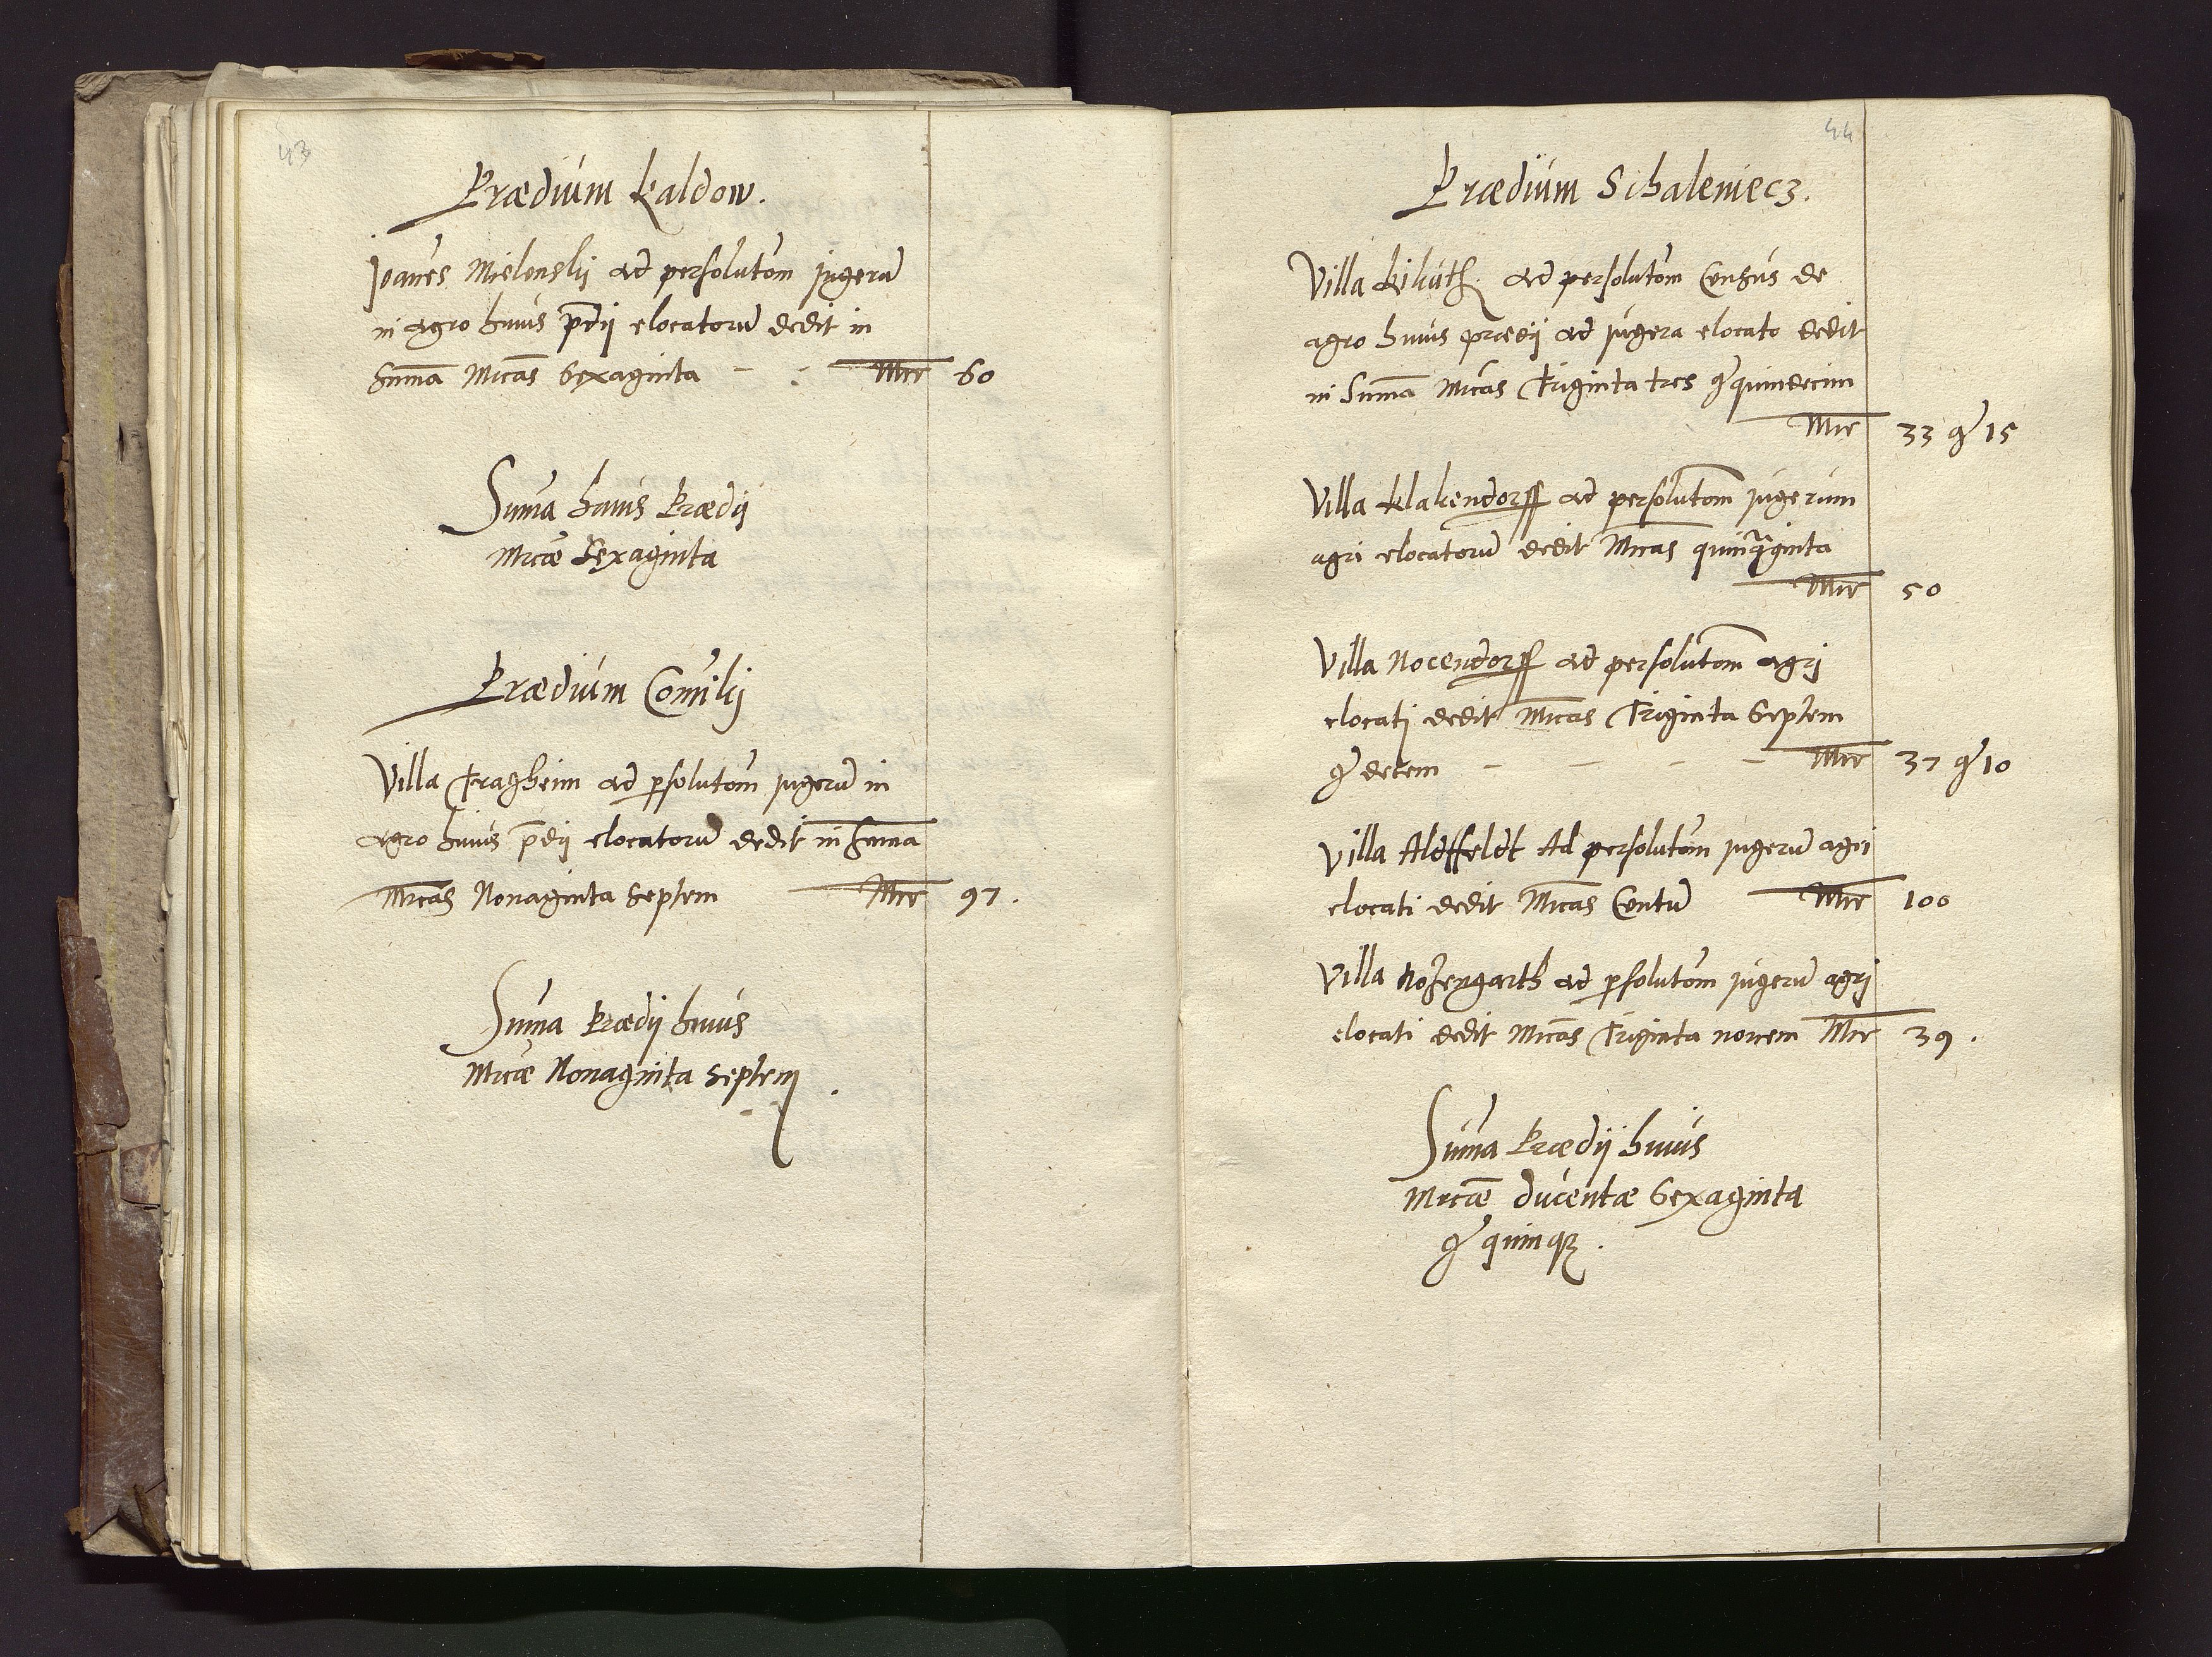 43
Prædium Kaldow.
Joañes Mielenskij ad persolutõm jugerũ
in agro huius p̃dij elocatorũ dedit in
sum̃a Mrcas Sexaginta - - Mrc 60
Sum̃a huius Prædij
Mrcæ Sexaginta
Prædium Comikij
Villa Tragheim ad psolutõm jugerũ in
agro huius p̃dij elocatorũ dedit in sum̃a
Mrcas Nonaginta Septem Mrc 97.
Sum̃a Prædij huius
Mrcæ Nonaginta Septem.
44
Prædium Schaleniecz.
Villa Kikuth ad persolutõm Census de
agro huius prædij ad jugera elocato dedit
in Sum̃a Mrcas Triginta tres gr quindecim
Mrc 33 gr 15
Villa Klakendorff ad persolutõm jugerum
agri elocatorũ dedit Mrcas quinqaginta
Mrc 50
Villa Nocendorff ad persolutõm agrj
elocatj dedit Mrcas Triginta Septem
gr decem - - - - Mrc 37 gr 10
Villa Aldtfeldt Ad persolutõm jugerũ agri
elocati dedit Mrcas Centũ Mrc 100
Villa Rozengarth ad psolutõm jugerũ agrj
elocati dedit Mrcas Triginta novem Mrc 39.
Sum̃a Prædij huius
Mrcæ ducentæ Sexaginta
gr quinqȝ.